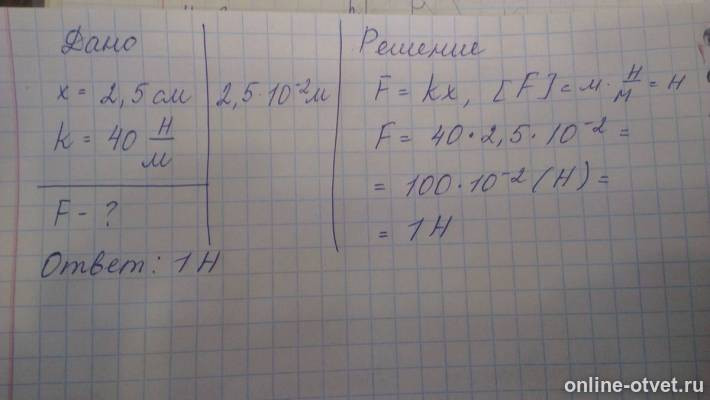 Дано
x = 2,5 см
2,5·10⁻² м
k = 40 Н/м
F - ?
Ответ: 1 Н
Решение
F = kx, [F] = м · Н/м = Н
F = 40 · 2,5 · 10⁻² =
= 100 · 10⁻² (Н) =
= 1 Н
online-otvet.ru